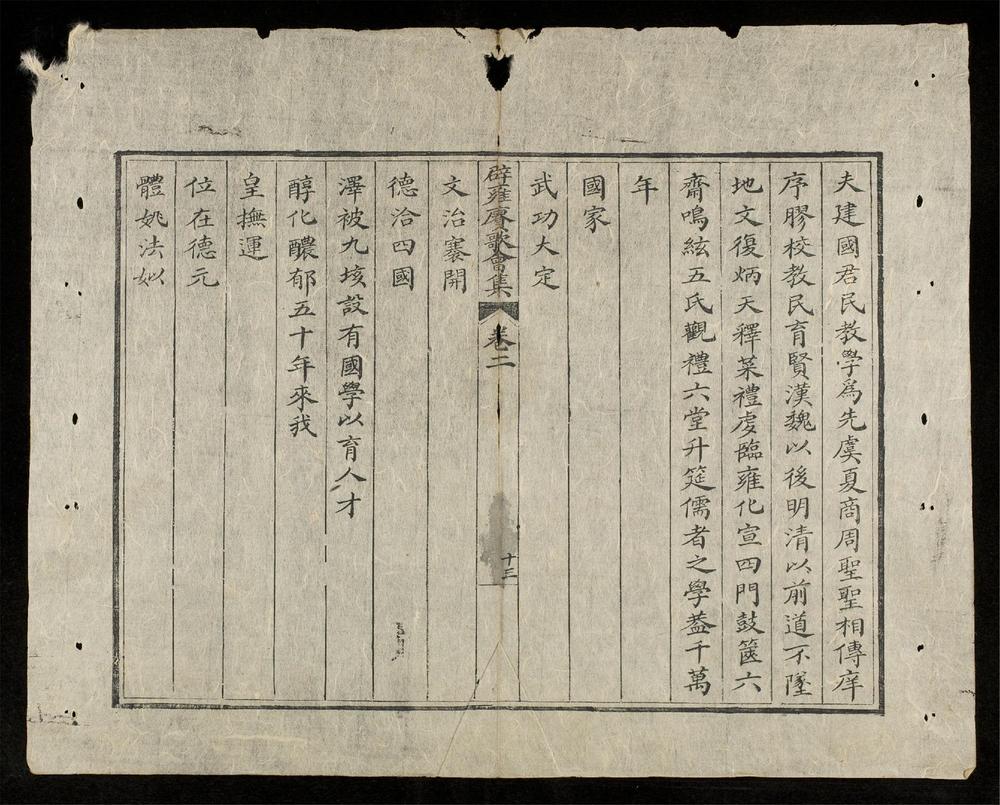 夫建國君民教學爲先虞夏商周聖聖相傳庠
序膠校教民育賢漢魏以後明清以前道不墜
地文復炳天釋菜禮虔臨雍化宣四門鼓篋六
齋鳴絃五氏觀禮六堂升筵儒者之學葢千萬
年
國家
武功大定
辟雍賡歌會集 卷二 十三
文治褰開
德洽四國
澤被九垓設有國學以育人才
醇化醲郁五十年來我
皇撫運
位在德元
體姚法姒